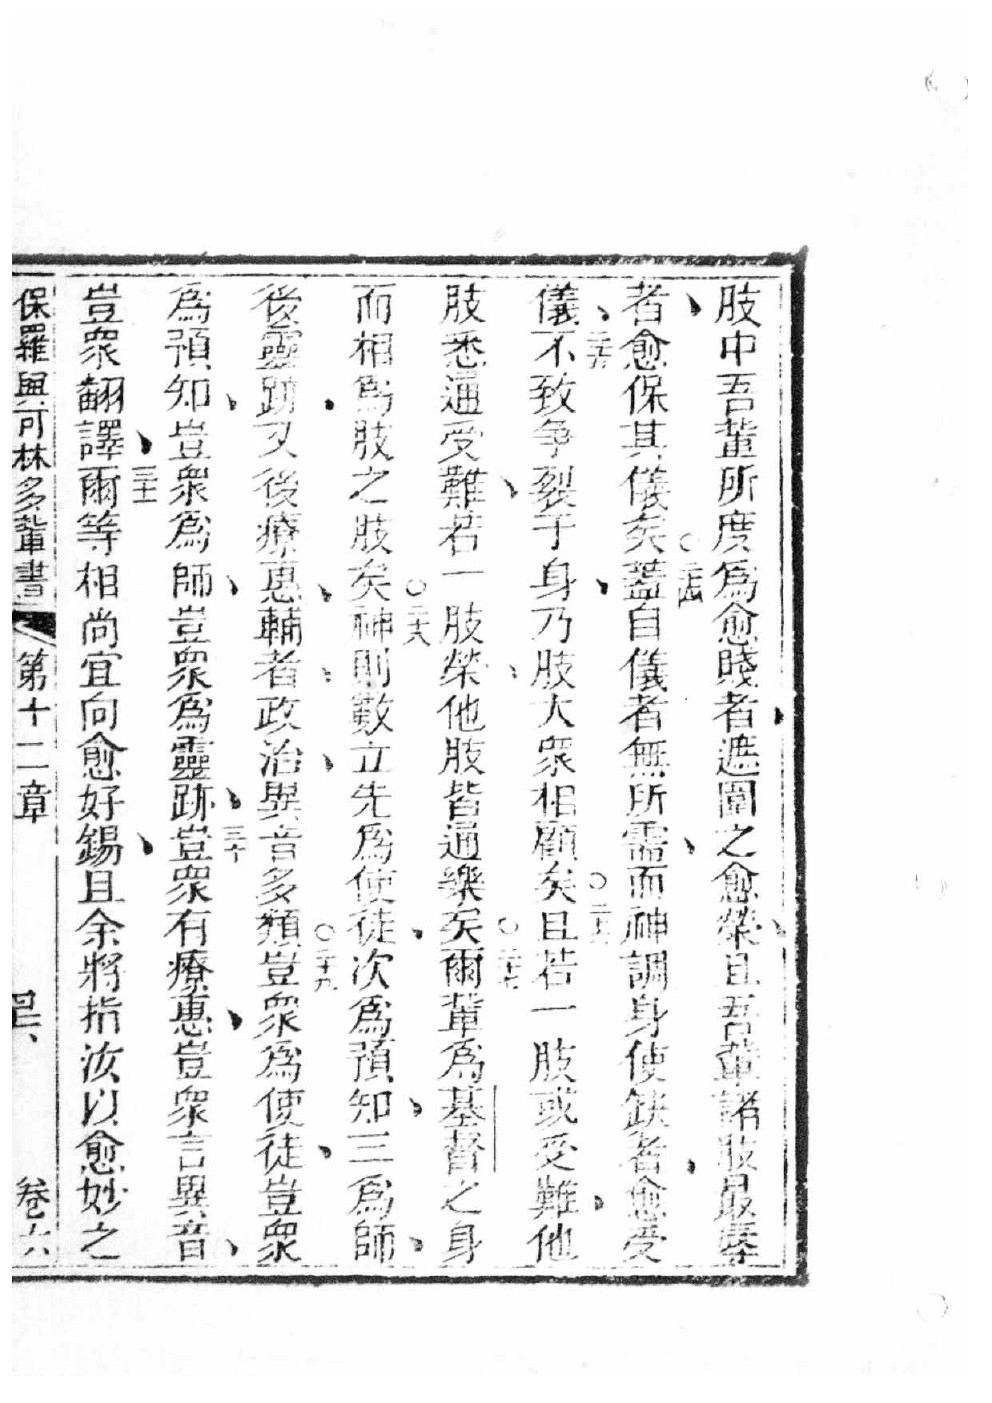 肢中吾輩所度爲愈賤者遮圍之愈榮且吾輩諸肢最辱
者愈保其儀矣○二十四蓋自儀者無所需而神調身使缺者愈受
儀、二十五不致争裂于身乃肢大衆相顧矣○二十六且若一肢或受難他
肢悉通受難若一肢榮他肢皆通樂矣○二十七爾輩爲基督之身
而相爲肢之肢矣○二十八神則數立先爲使徒次爲預知三爲師
後靈跡又後療惠輔者政治異音多類○二十九豈衆爲使徒豈衆
爲預知豈衆爲師豈衆爲靈跡三十豈衆有療惠豈衆言異音
豈衆翻譯三十一爾等相尚宜向愈好錫且余將指汝以愈妙之
保羅與可林多輩書 第十二章 卷六